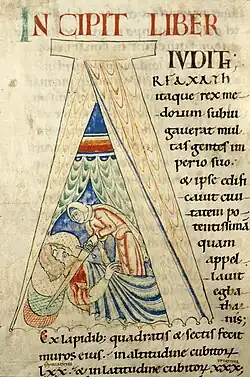 INCIPIT LIBER
IUDIT;
RFAXATH
itaque rex me
dorum subiu
gauerat mul
tas gentes im
perio suo.
& ipse edifi
cauit ciui
tatem po
tentissimā
quam
appel
lauit
egba
tha
nis;
Ex lapidib; quadratis & sectis fecit
muros eius. in altitudine cubitorū
lxx. & in latitudine cubitorū xxx.